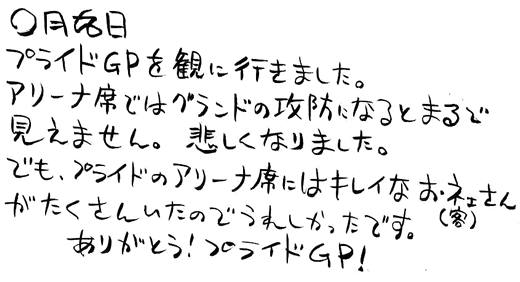 〇月各日
プライドGPを観に行きました。
アリーナ席ではグランドの攻防になるとまるで
見えません。悲しくなりました。
でも、プライドのアリーナ席にはキレイなお・ネエさん
(客)
がたくさんいたのでうれしかったです。
ありがとう!プライドGP!